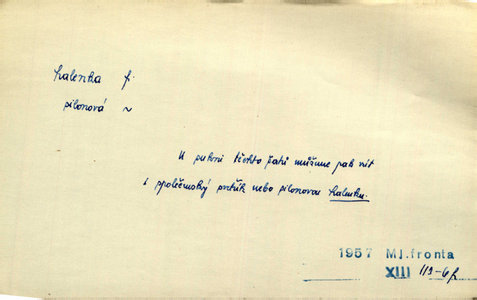 halenka f.
silonová ~
K sukni těchto šatů můžeme pak vzít
i společenský svetřík nebo silonovou halenku.
1957 Ml.fronta
XIII 119-6